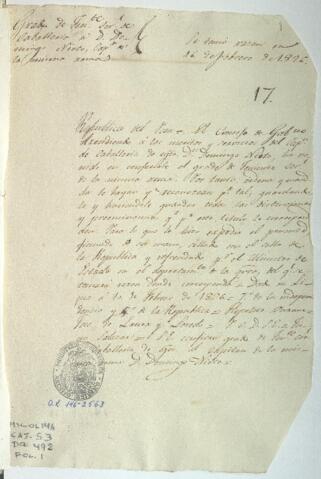 Grado de Ten.te Cor.l de
Caballeria á D. Do-
mingo Nieto, Cap.n de
la misma arma
Se tomó razon en
16 de Febrero de 1826
17.
Republica del Peru = El Consejo de Gob.no
Atendiendo á los meritos y servicios del Cap.n
de Caballeria de egto D. Domingo Nieto, ha ve-
nido en conferirle el grado de Teniente Cor.l
de la misma arma. Por tanto ordena y man-
da lo hayan y reconozcan p.r tal, guardando-
le y haciendole guardar todas las distinciones
y preeminencias q.e p.r este titulo le correspon-
den. Para lo que le hizo expedir el presente
firmado de su mano, sellado con el sello de
la Republica y refrendado p.r el Ministro de
Estado en el departamento de la guerra, del q.e se
tomará razon donde corresponda. Dado en Li-
ma á 10 de Febrero de 1826 = 7.o de la independ
encia y 5.o de la Republica = Hipolito Unanue
Jose de Larrea y Loredo = P. O. de S. E. = Juan
Salazar = S. E. confiere grado de Ten.te Cor.l
de Caballeria de egto al Capitan de la mis-
ma arma D. Domingo Nieto =
O.L. 146-2563
MH-OL 146
CAJ. 53
DOC 492
FOL. 1